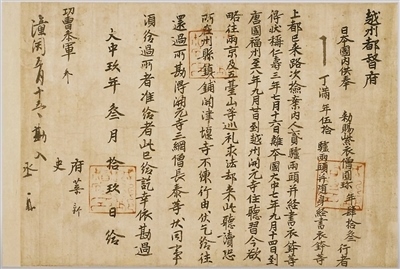 越州都督府
日本國内供奉 勅賜紫衣僧圓珍 年肆拾叁 行者
丁滿年伍拾 驢兩頭并隨身經書衣鉢等
上都已来路次檢案内人貳驢兩頭并經書衣鉢等
得狀稱仁壽三年七月十六日離本國大中七年九月十四日到
唐國福州至八年九月廿日到越州開元寺住聽習今欲
略往兩京及五臺山等巡礼求法却来此聽讀恐
所在州縣鎮鋪關津堰寺不練行由伏乞給往
還過所勘得開元寺三綱僧長泰等狀同事
須給過所者准給者此已給訖幸依勘過
大中玖年叁月拾玖日給
府葉新
功曹參軍
史
潼關五月十五日勘入
丞